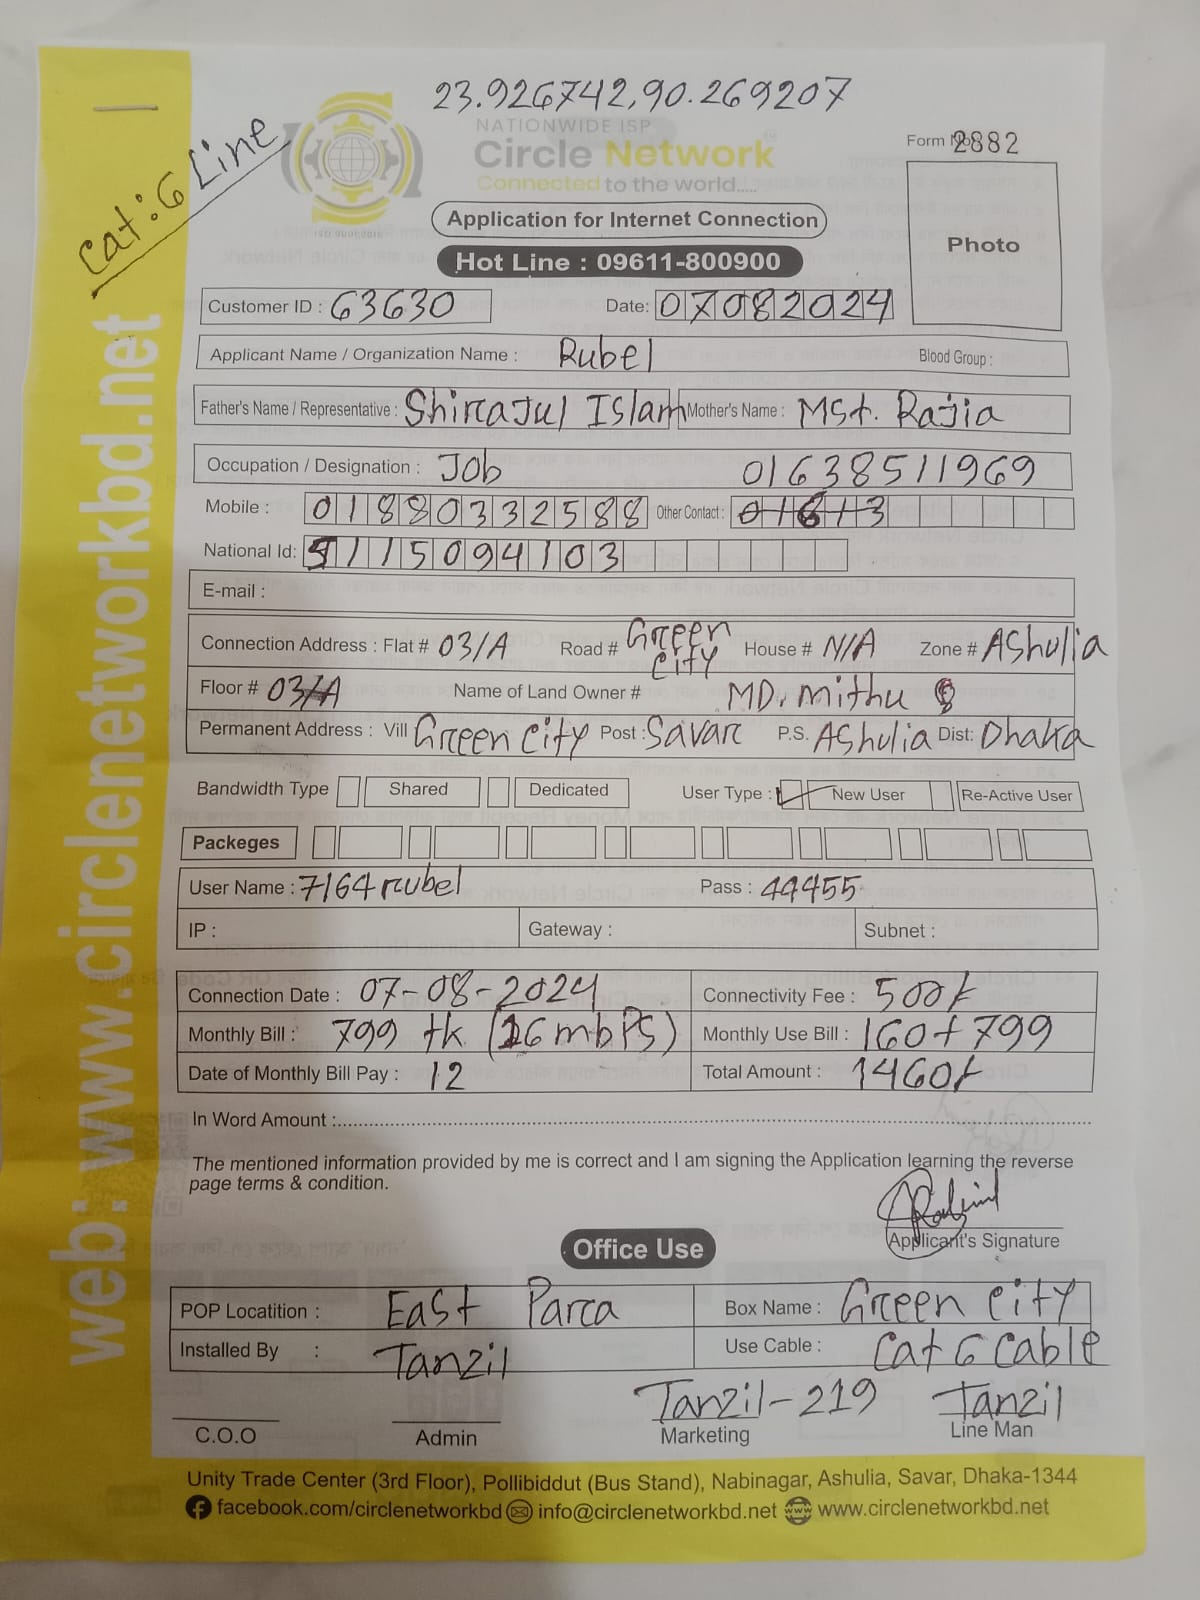 23.926742,90.269207
Cat:6 Line
NATIONWIDE ISP
Circle Network
Connected to the world.....
ISO 9001:2015
Form No. 2882
Application for Internet Connection
Photo
Hot Line : 09611-800900
Customer ID : 63630 Date: 07082024
Applicant Name / Organization Name : Rubel Blood Group :
Father's Name / Representative : Shirajul Islam Mother's Name : MSt. Rajia
Occupation / Designation : Job 01638511969
Mobile : 01880332588 Other Contact : 01613
National Id: 5115094103
E-mail :
Connection Address : Flat # 03/A Road # Green City House # N/A Zone # Ashulia
Floor # 03/A Name of Land Owner # MD. Mithu
Permanent Address : Vill Green City Post : Savar P.S. Ashulia Dist: Dhaka
Bandwidth Type Shared Dedicated User Type : New User Re-Active User
Packeges
User Name : 7164rubel Pass : 44455
IP : Gateway : Subnet :
Connection Date : 07-08-2024 Connectivity Fee : 500/-
Monthly Bill : 799 tk (26 mbPS) Monthly Use Bill : 160+799
Date of Monthly Bill Pay : 12 Total Amount : 1460/-
In Word Amount :
The mentioned information provided by me is correct and I am signing the Application learning the reverse
page terms & condition.
Applicant's Signature
Office Use
POP Locatition : East Para Box Name : Green City
Installed By : Tanzil Use Cable : Cat 6 Cable
Tanzil-219 Tanzil
C.O.O Admin Marketing Line Man
Unity Trade Center (3rd Floor), Pollibiddut (Bus Stand), Nabinagar, Ashulia, Savar, Dhaka-1344
facebook.com/circlenetworkbd info@circlenetworkbd.net www.circlenetworkbd.net
web: www.circlenetworkbd.net